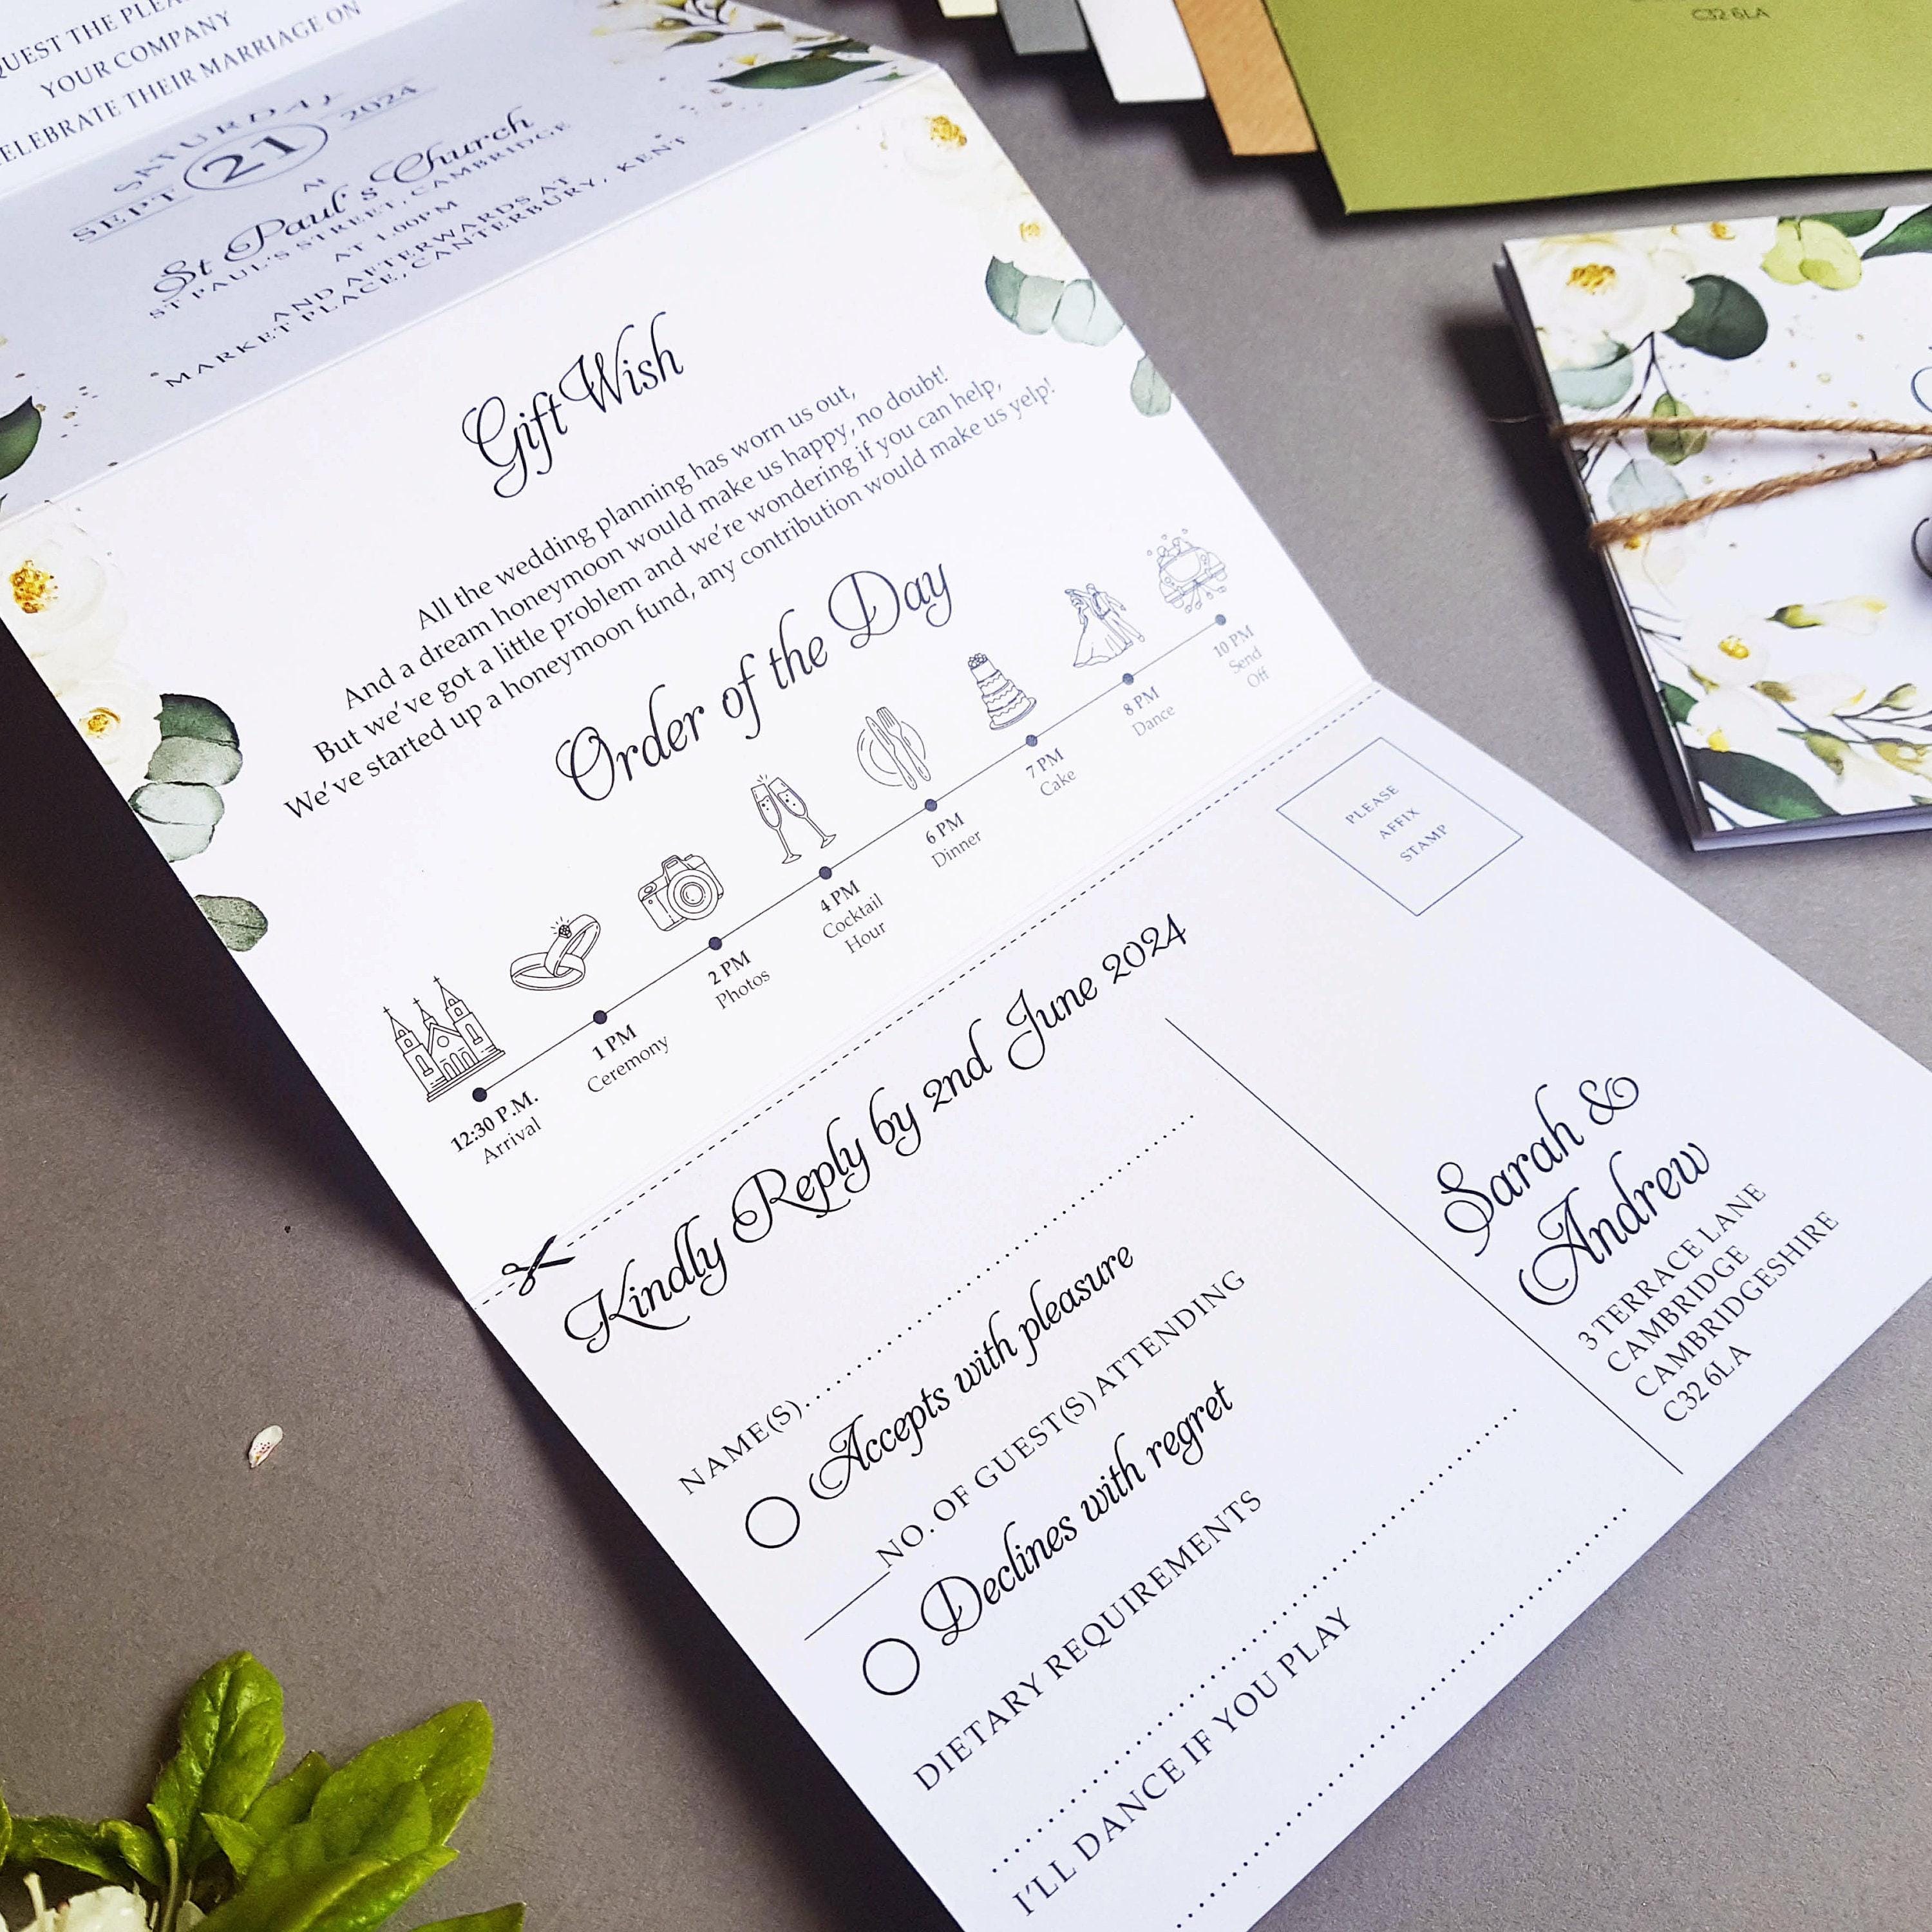 QUEST THE
YOUR COMPANY
CELEBRATE THEIR MARRIAGE ON
SATURDAY
SEPT 21 2024
AT
St Paul's Church
ST PAUL'S STREET, CAMBRIDGE
AT 1.00PM
AND AFTERWARDS AT
MARKET PLACE, CANTERBURY, KENT
Gift Wish
All the wedding planning has worn us out,
And a dream honeymoon would make us happy, no doubt!
But we've got a little problem and we're wondering if you can help,
We've started up a honeymoon fund, any contribution would make us yelp!
Order of the Day
12:30 P.M.
Arrival
1 PM
Ceremony
2 PM
Photos
4 PM
Cocktail
Hour
6 PM
Dinner
7 PM
Cake
8 PM
Dance
10 PM
Send
Off
Kindly Reply by 2nd June 2024
NAME(S)
Accepts with pleasure
NO. OF GUEST(S) ATTENDING
Declines with regret
DIETARY REQUIREMENTS
I'LL DANCE IF YOU PLAY
PLEASE
AFFIX
STAMP
Sarah &
Andrew
3 TERRACE LANE
CAMBRIDGE
CAMBRIDGESHIRE
C32 6LA
C32 6LA